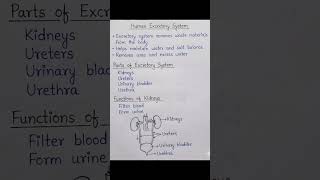 Parts of Excre
Kidneys
Ureters
Urinary blad
Urethra
Functions of
Filter blood
Form urine
Human Excretory System
• Excretory system removes waste materials
from the body
• Helps maintain water and salt balance
• Removes urea and excess water
Parts of Excretory System
Kidneys
Ureters
Urinary bladder
Urethra
Functions of Kidneys
Filter blood
Form urine
Kidneys
Ureters
Urinary bladder
Urethra